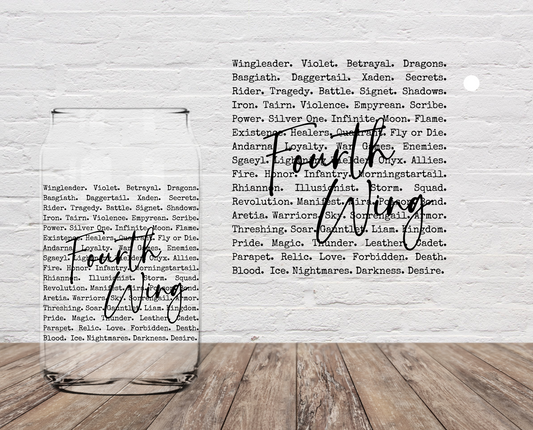 Wingleader. Violet. Betrayal. Dragons.
Basgiath. Daggertail. Xaden. Secrets.
Rider. Tragedy. Battle. Signet. Shadows.
Iron. Tairn. Violence. Empyrean. Scribe.
Power. Silver One. Infinite. Moon. Flame.
Existence. Healers. Quadrant. Fly or Die.
Andarna. Loyalty. War Games. Enemies.
Sgaeyl. Lightening. Wielder. Onyx. Allies.
Fire. Honor. Infantry. Morningstartail.
Rhiannon. Illusionist. Storm. Squad.
Revolution. Manifest. Fire. Wingdom.
Aretia. Warriors. Sky. Sorrengail. Armor.
Threshing. Soar. Gauntlet. Liam. Kingdom.
Pride. Magic. Thunder. Leather. Cadet.
Parapet. Relic. Love. Forbidden. Death.
Blood. Ice. Nightmares. Darkness. Desire.
Fourth
Wing
Wingleader. Violet. Betrayal. Dragons.
Basgiath. Daggertail. Xaden. Secrets.
Rider. Tragedy. Battle. Signet. Shadows.
Iron. Tairn. Violence. Empyrean. Scribe.
Power. Silver One. Infinite. Moon. Flame.
Existence. Healers. Quadrant. Fly or Die.
Andarna. Loyalty. War Games. Enemies.
Sgaeyl. Onyx. Allies.
Fire. Honor. Infantry. Morningstartail.
Rhiannon. Illusionist. Storm. Squad.
Revolution. Manifest.
Aretia. Warriors. Sky. Sorrengail. Armor.
Threshing. Soar. Gauntlet. Liam. Kingdom.
Pride. Magic. Thunder. Leather. Cadet.
Parapet. Relic. Love. Forbidden. Death.
Blood. Ice. Nightmares. Darkness. Desire.
Fourth
Wing